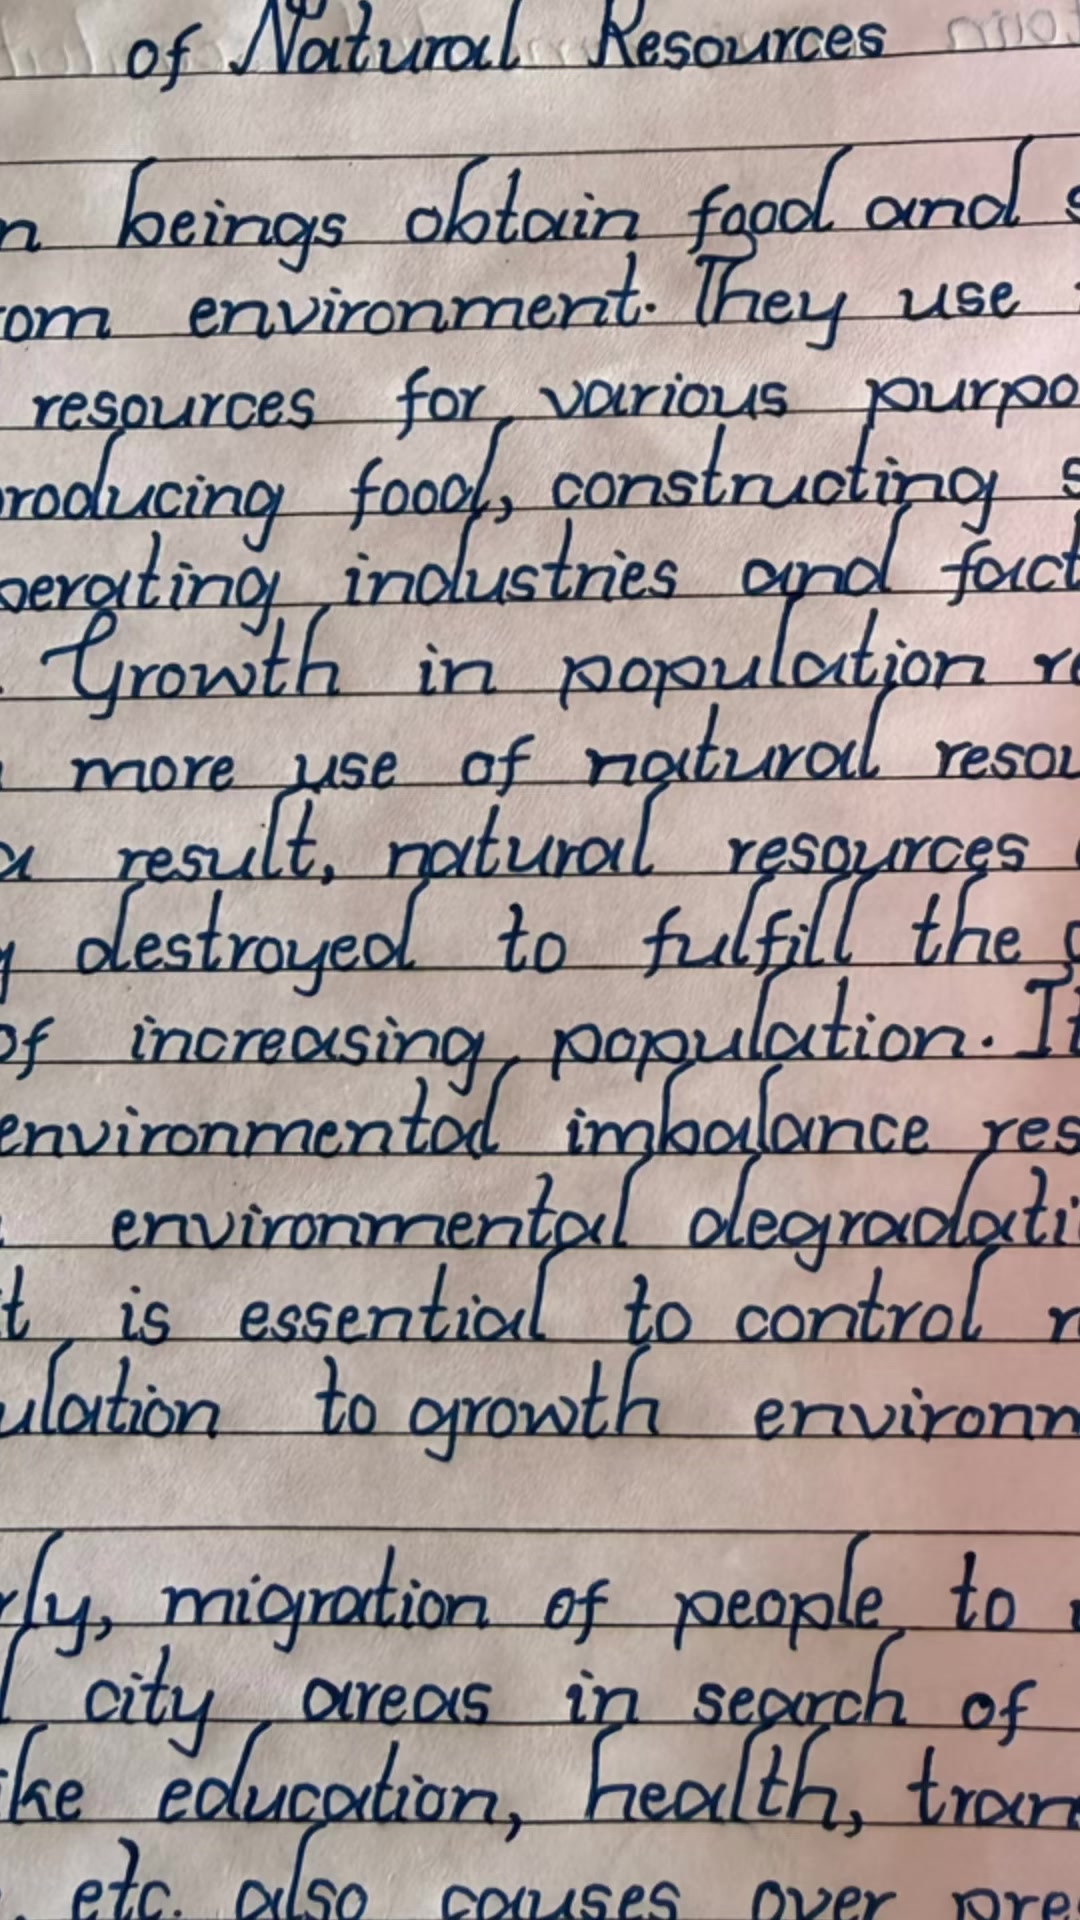 of Natural Resources
n beings obtain food and s
om environment. They use
resources for various purpo
roducing food, constructing s
perating industries and fact
. Growth in population re
more use of natural resou
a result, natural resources
g destroyed to fulfill the
of increasing population. It
environmental imbalance res
environmental degradati
t is essential to control r
ulation to growth environm
rly, migration of people to
city areas in search of
ike education, health, tran
. etc. also causes over pre